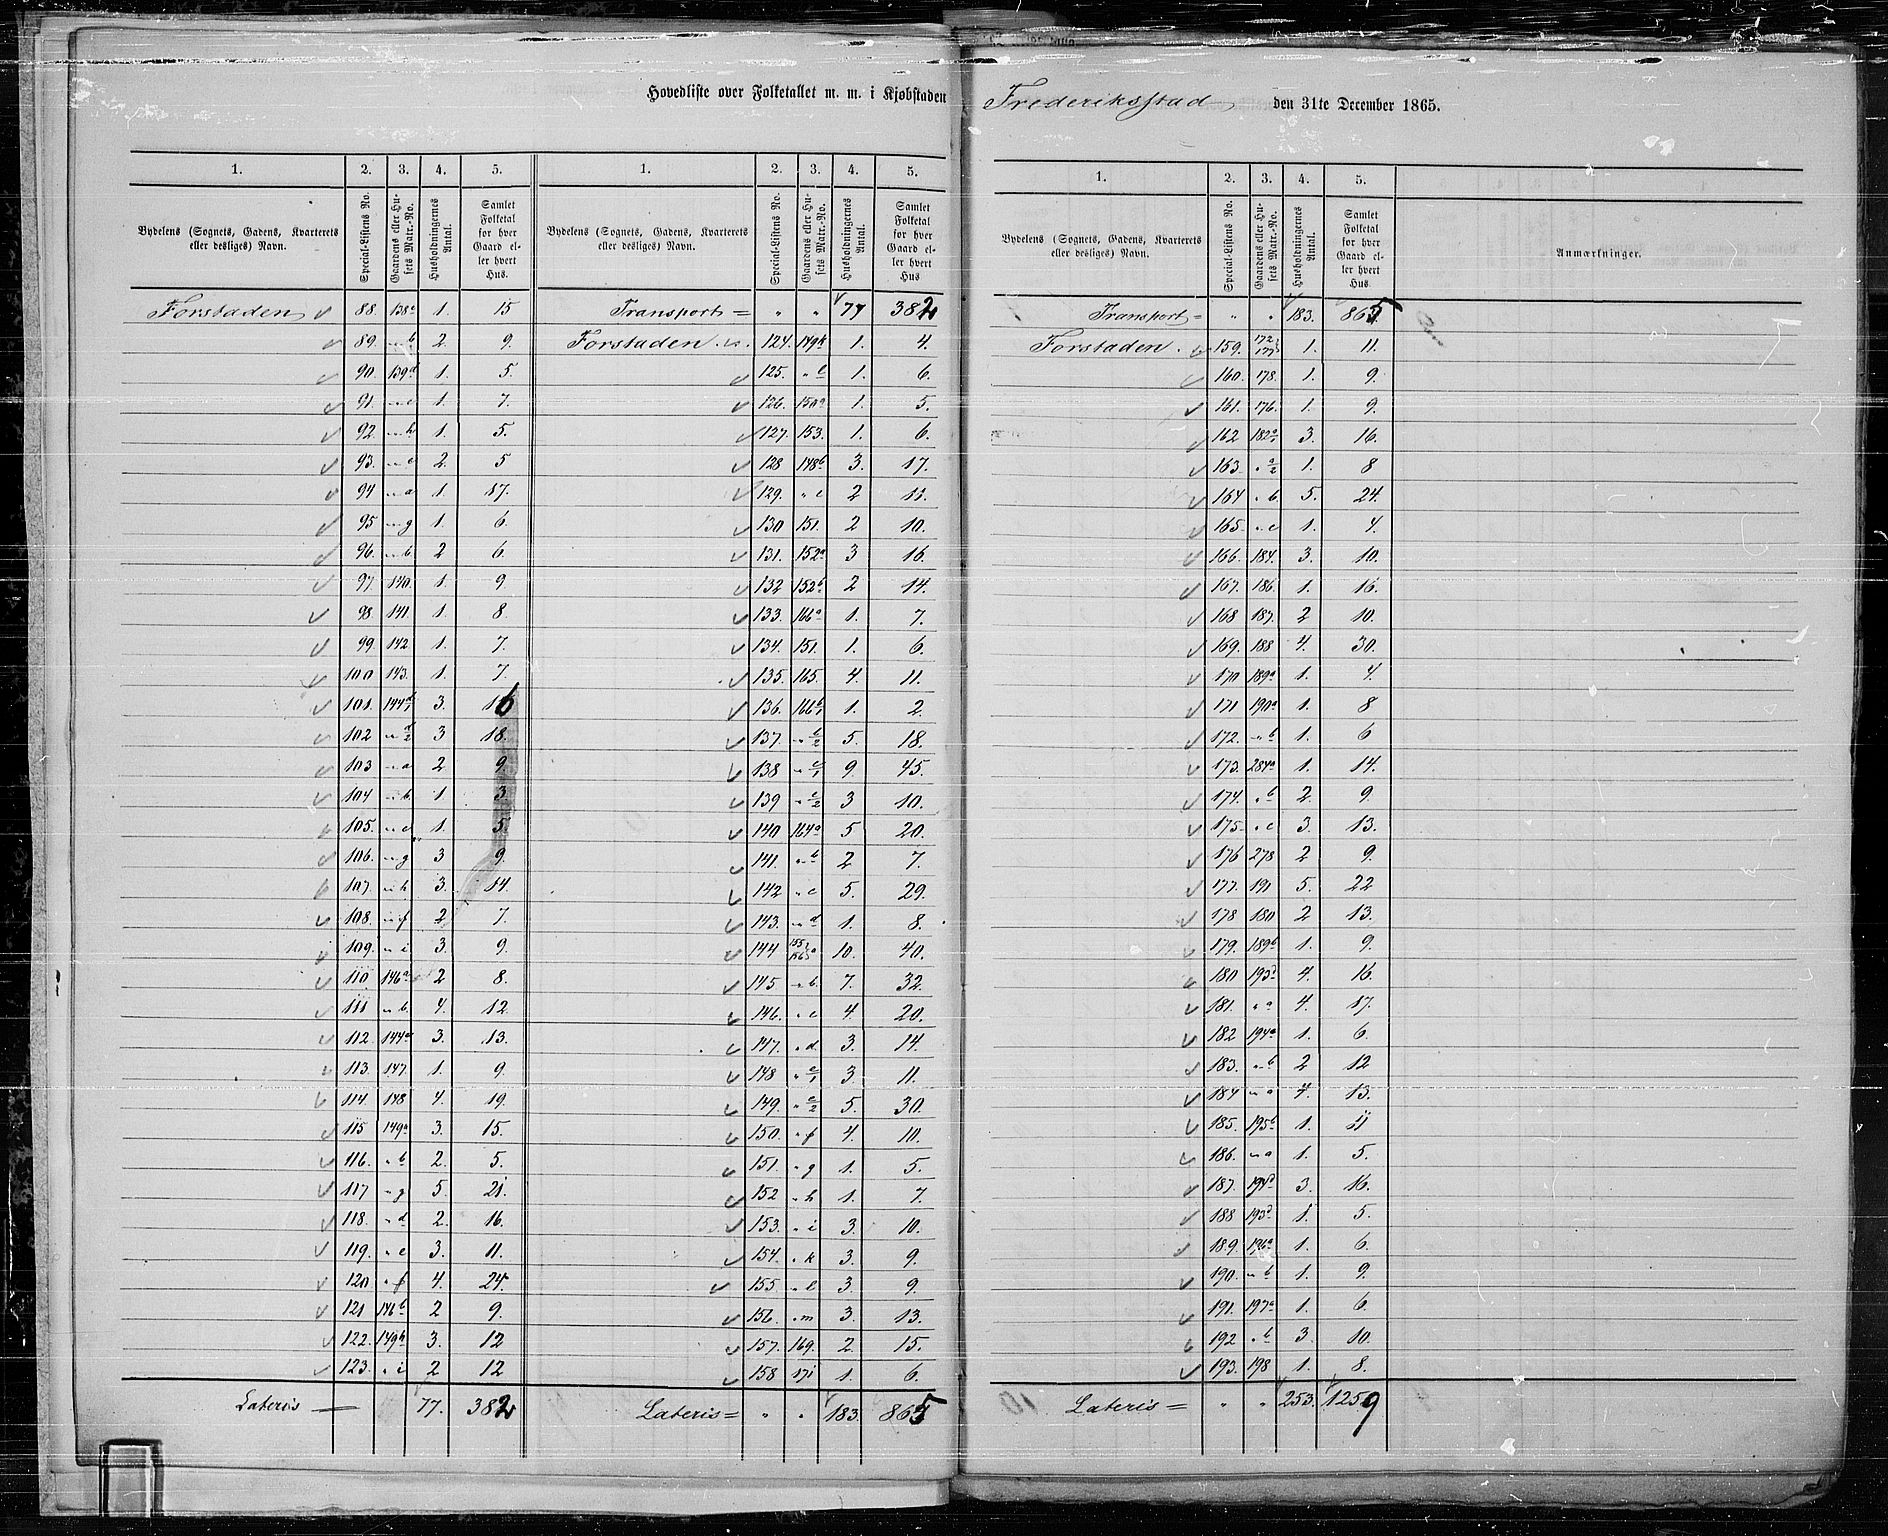 Hovedliste over Folketallet m. m. i Kjøbstaden Frederiksstad den 31te December 1865.
1. 2. 3. 4. 5.
Bydelens (Sognets, Gadens, Kvarterets eller desliges) Navn. Special-Listens No. Gaardens eller Husets Matr.-No. Husholdningernes Antal. Samlet Folketal for hver Gaard eller hvert Hus.
Forstaden 88. 138a 1. 15
89. " b 2. 9.
90. 139d 1. 5.
91. " c 1. 7.
92. " h 1. 5.
93. " e 2. 5
94 " a 1. 17.
95. " g 1. 6.
96. " b 2 6.
97. 140. 1. 9.
98. 141. 1. 8.
99. 142. 1. 7.
100 143. 1. 7.
101. 144 d/1 3. 16
102 " d/2 3 18.
103 " a 2 9.
104 " b. 1 3.
105. " c 1. 5.
106. " g 3 9.
107. " h 3. 14.
108. " f 2 7.
109. " i 3. 9.
110. 146a 2 8.
111 " b. 4. 12.
112. 144e 3. 13.
113. 147. 1. 9.
114. 148 4. 19.
115 149a 3. 15.
116. " b 2. 5.
117 " g 5. 21.
118. " d 2. 16.
119. " c 3. 11.
120 " f 4. 24.
121 146b 2 9.
122. 149h 3. 12
123. " i 2 12
Lateris 77. 382
1. 2. 3. 4. 5.
Bydelens (Sognets, Gadens, Kvarterets eller desliges) Navn. Special-Listens No. Gaardens eller Husets Matr.-No. Husholdningernes Antal. Samlet Folketal for hver Gaard eller hvert Hus
Transport = " " 77 382
Forstaden 124. 149k 1. 4.
125. " l 1. 6.
126. 150a 1. 5.
127. 153. 1. 6.
128 148b 3. 17.
129. " c 2 11.
130 151. 2 10.
131. 152a 3 16
132 152b 2 14.
133. 166a 1. 7.
134. 151. 1. 6.
135. 165. 4. 11.
136. 166 b/1 1. 2.
137. " b/2 5. 18.
138 " c/1 9. 45.
139 " c/2 3 10.
140 164a 5 20.
141. " b 2 7.
142 " c 5. 29.
143. " d 1. 8.
144 10. 40.
145 " b. 7. 32.
146. " c 4 20.
147. " d. 3. 14.
148 " e/1 3. 11.
149. " e/2 5. 30.
150. " f 4. 10.
151. " g 1. 5.
152 " h 1. 7.
153. " i 3. 10.
154. " k 3. 9.
155. " l 3. 9.
156. " m 3. 13.
157. 169. 2 15.
158 171 1. 6.
Lateris = " " 183. 865
1. 2. 3. 4. 5.
Bydelens (Sognets, Gadens, Kvarterets eller desliges) Navn. Special-Listens No. Gaardens eller Husets Matr.-No. Husholdningernes Antal. Samlet Folketal for hver Gaard eller hvert Hus. Anmærkninger.
Transport = " " 183. 865
Forstaden. 159. 172 177 1. 11.
160. 178. 1. 9.
161. 176. 1. 9.
162 182 a/1 3. 16.
163. " a/2 1. 8
164 " b. 5. 24.
165. " c 1. 4.
166. 184. 3. 10.
167. 186. 1. 16.
168 187. 2 10.
169. 188 4. 30.
170 189a 1. 4.
171 190a 1. 8
172. " b 1. 6
173. 284a 1. 14.
174. " b 2. 9.
175. " c 3. 13.
176 278 2 9.
177. 191 5. 22
178 180 2 13.
179. 189b 1. 9.
180 193d 4. 16
181. " a 4. 17.
182 194a 1. 6.
183. " b 2 12
184 " a 4. 13.
185. 195b 1. 11
186. " a 1. 5.
187. 194d 3. 16.
188 193d 1. 5.
189. 196a 1. 6.
190. " b 1. 9.
191. 197a 1. 6.
192 " b 3. 10.
193. 198 1. 8.
Lateris = " " 253. 1259